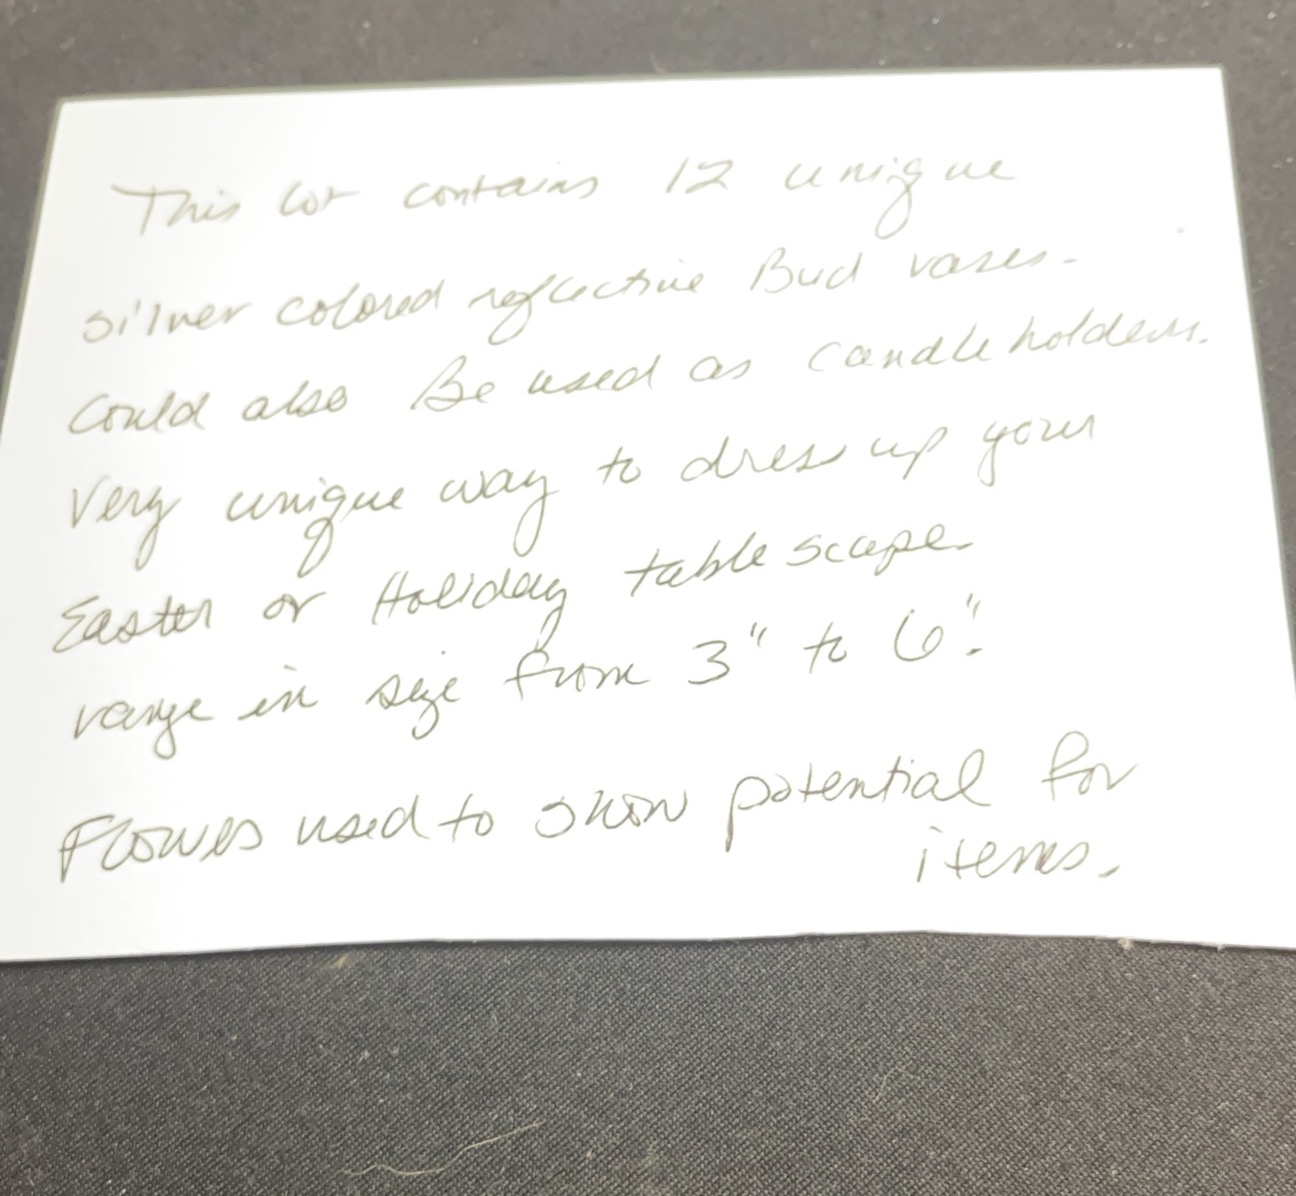 This lot contains 12 unique
silver colored reflective Bud vases.
Could also Be used as candle holders.
Very unique way to dress up your
Easter or Holiday table scape.
range in size from 3" to 6".
Flowes used to show potential for
items.